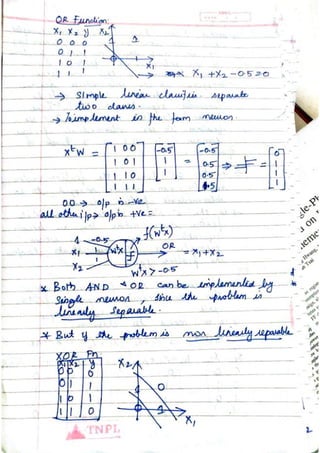 OR Function:
X₁ X₂ y X₂
0 0 0
0 1 1
1 0 1 X₁
1 1 1 X₁ + X₂ - 0.5 = 0
→ Simple linear classifier separate
two classes.
→ To implement in the form neuron.
XᵗW = [1 0 0] [-0.5] [-0.5] [0]
[1 0 1] [1] = [0.5] ⇒ = [1]
[1 1 0] [1] [0.5] [1]
[1 1 1] [1.5] [1]
00 → o/p is -ve
all other i/p → o/p is +ve =
f(wᵗx)
1 -0.5 OR
X₁ 1 wᵗx = X₁ + X₂
X₂ 1
wᵗx > -0.5
* Both AND & OR can be implemented by
single neuron, since the problem is
linearly separable.
* But if the problem is non linearly separable
XOR Fn
X₁ X₂ y X₂
0 0 0
0 1 1 0
1 0 1
1 1 0 X₁
TNPL
2